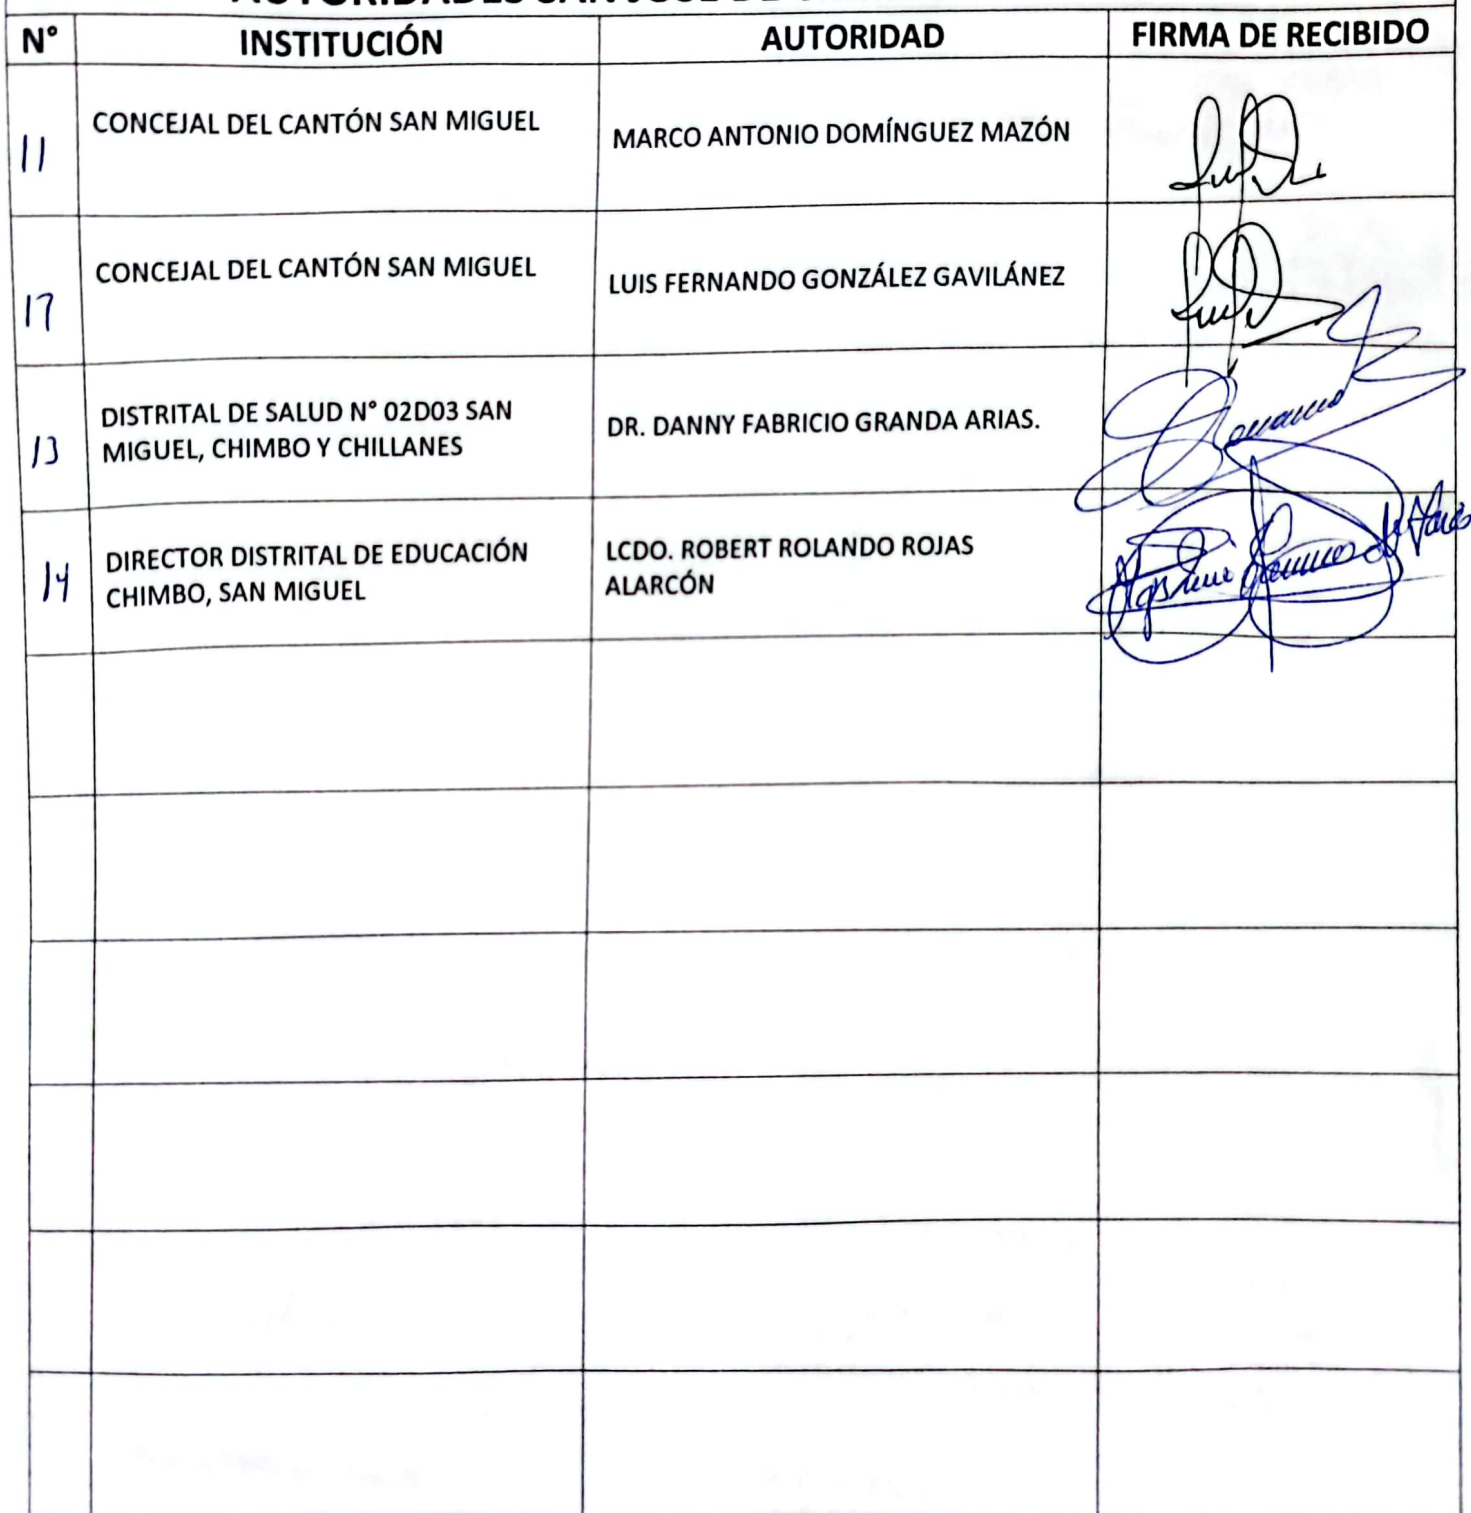 AUTORIDADES SAN JOSÉ DE
N° INSTITUCIÓN AUTORIDAD FIRMA DE RECIBIDO
11 CONCEJAL DEL CANTÓN SAN MIGUEL MARCO ANTONIO DOMÍNGUEZ MAZÓN
17 CONCEJAL DEL CANTÓN SAN MIGUEL LUIS FERNANDO GONZÁLEZ GAVILÁNEZ
13 DISTRITAL DE SALUD N° 02D03 SAN
MIGUEL, CHIMBO Y CHILLANES
DR. DANNY FABRICIO GRANDA ARIAS.
14 DIRECTOR DISTRITAL DE EDUCACIÓN
CHIMBO, SAN MIGUEL
LCDO. ROBERT ROLANDO ROJAS
ALARCÓN